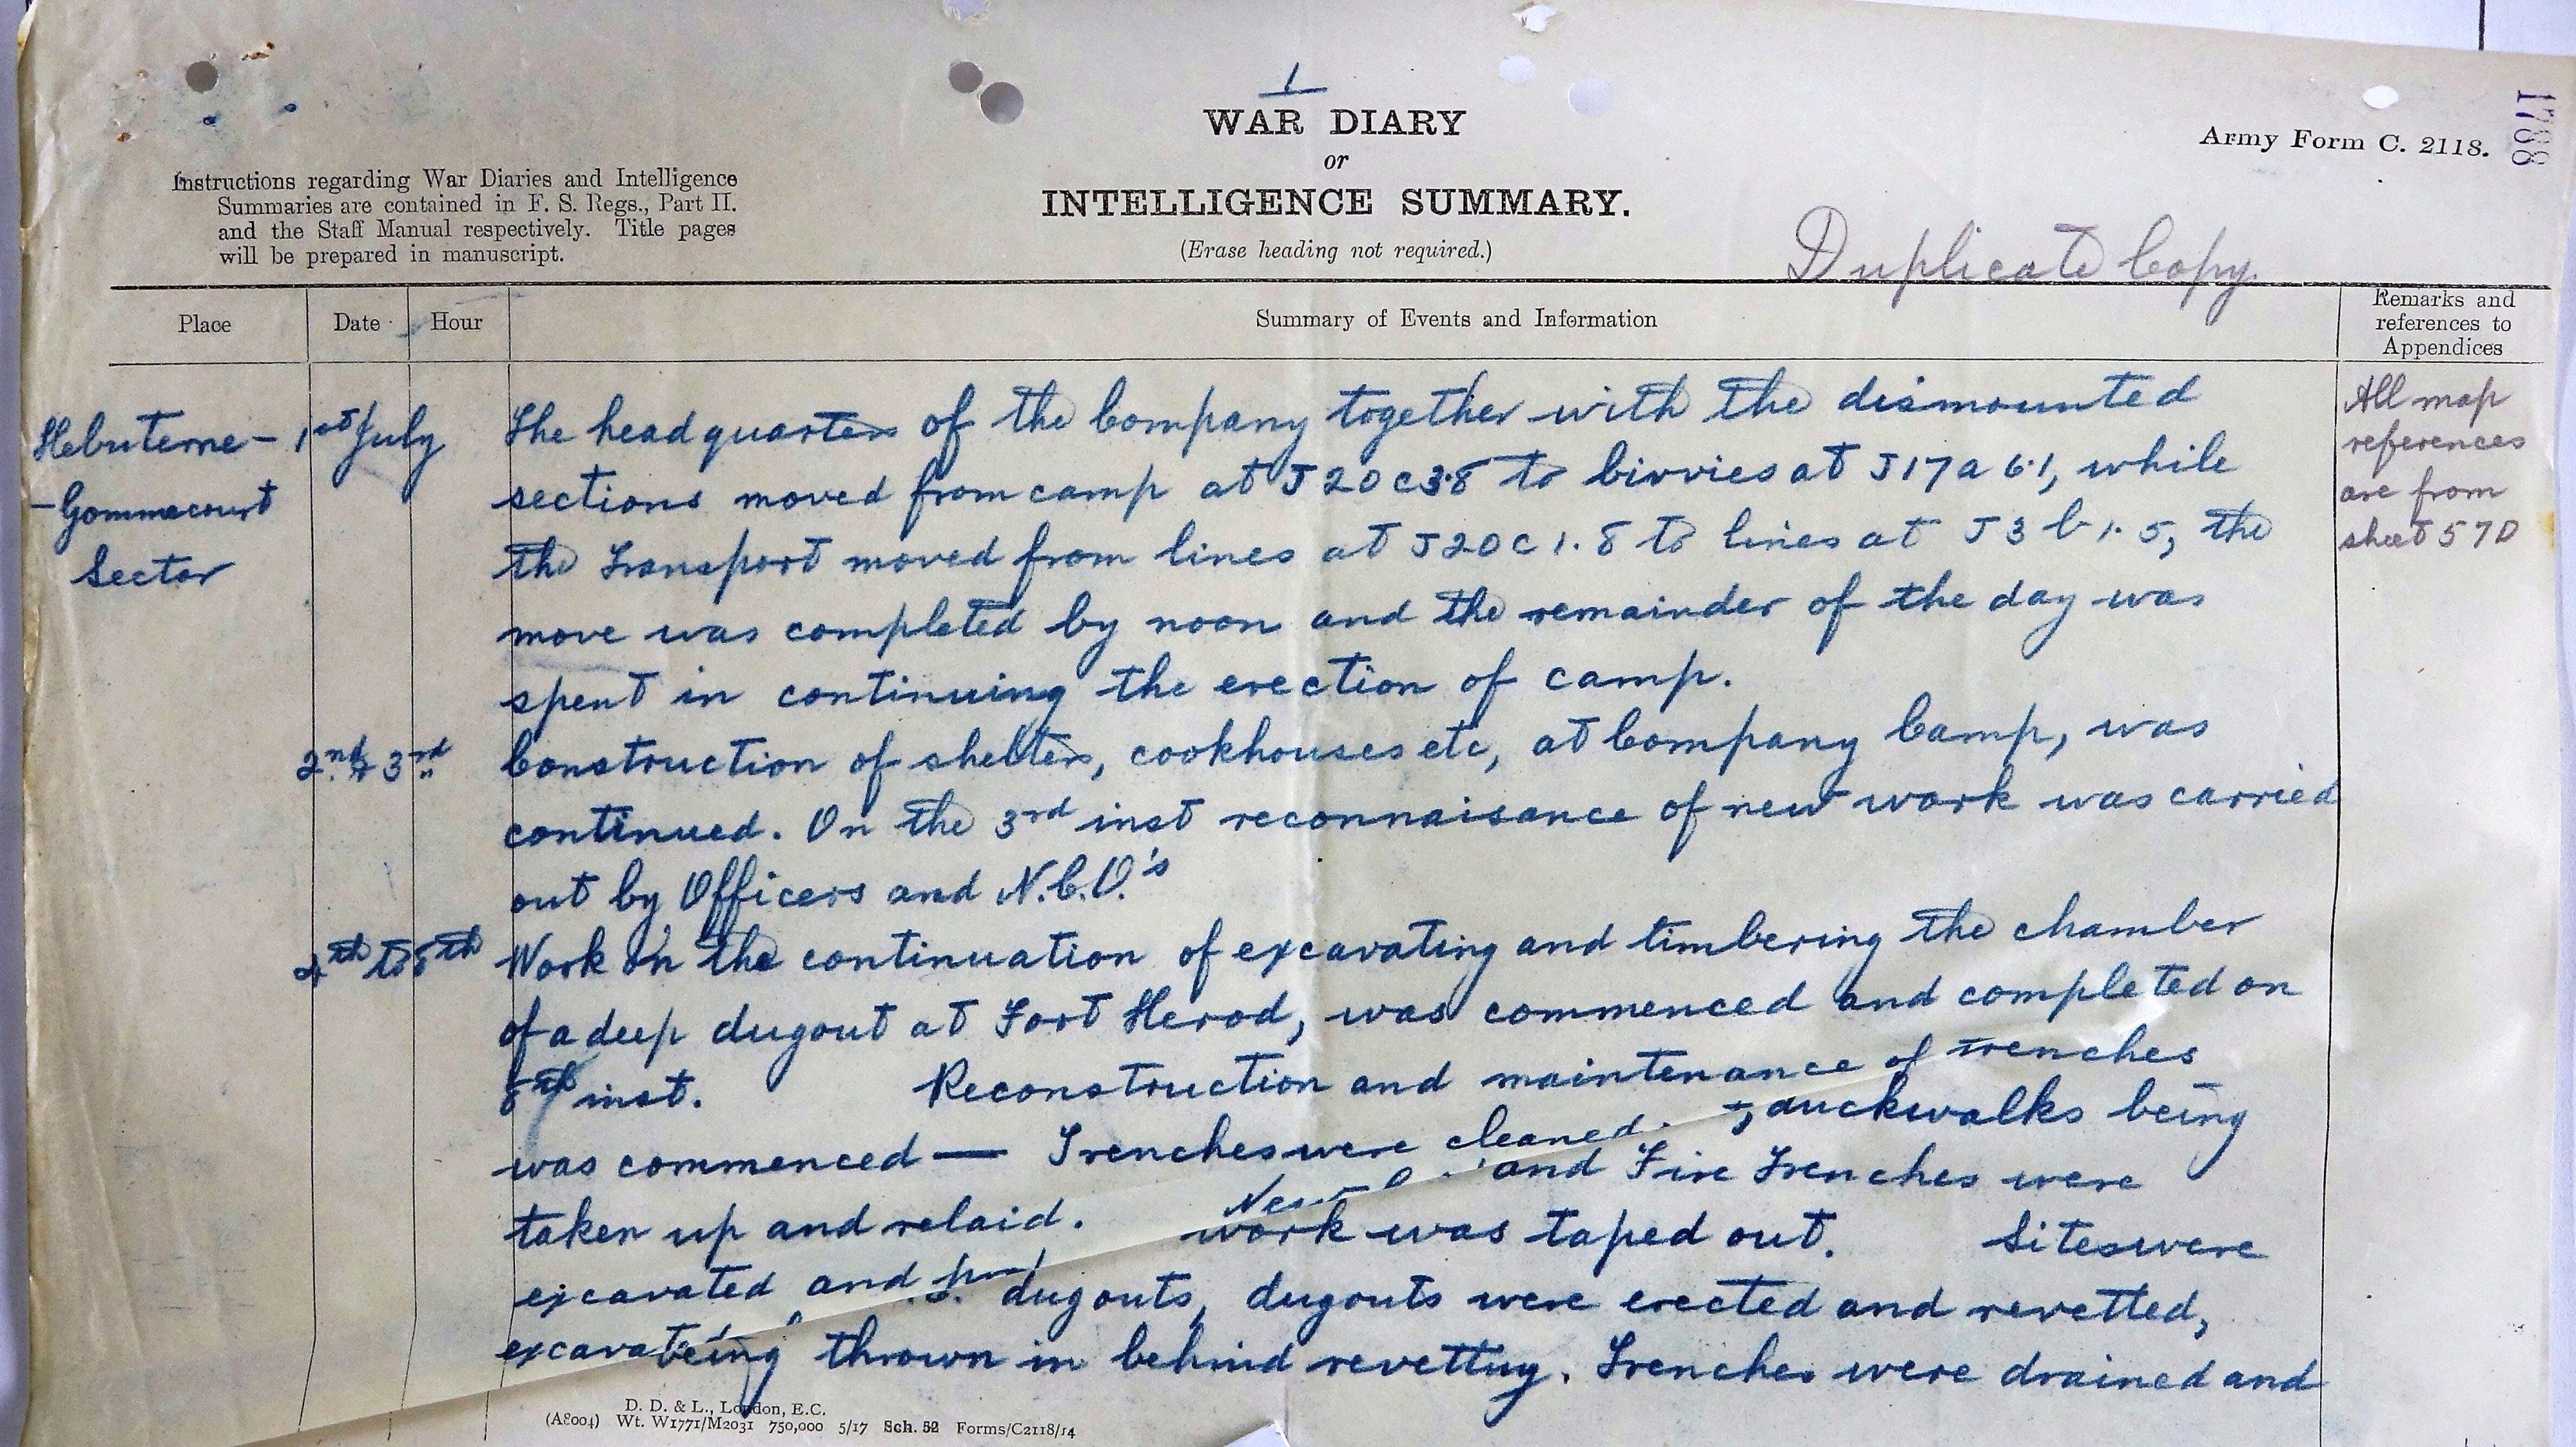 1
WAR DIARY
or
INTELLIGENCE SUMMARY.
(Erase heading not required.)
Army Form C. 2118.
1788
Instructions regarding War Diaries and Intelligence
Summaries are contained in F. S. Regs., Part II.
and the Staff Manual respectively. Title pages
will be prepared in manuscript.
Duplicate Copy.
Place Date Hour Summary of Events and Information Remarks and
references to
Appendices
Hebuterne – 1st July The headquarters of the Company together with the dismounted
– Gommecourt sections moved from camp at J20c3.8 to bivvies at J17a 6.1, while
Sector the Transport moved from lines at J20c 1.8 to lines at J3b 1.5, the
move was completed by noon and the remainder of the day was
spent in continuing the erection of camp.
All map
references
are from
sheet 57D
2nd & 3rd Construction of shelters, cookhouses etc, at Company Camp, was
continued. On the 3rd inst reconnaisance of new work was carried
out by Officers and N.C.O.'s
4th to 8th Work on the continuation of excavating and timbering the chamber
of a deep dugout at Fort Herod, was commenced and completed on
8th inst. Reconstruction and maintenance of trenches
was commenced — Trenches were cleaned , duckwalks being
taken up and relaid. and Fire Trenches were
work was taped out. Sites were
excavated and dugouts, dugouts were erected and revetted,
being thrown in behind revetting. Trenches were drained and
D. D. & L., London, E.C.
(A8004) Wt. W1771/M2031 750,000 5/17 Sch. 52 Forms/C2118/14